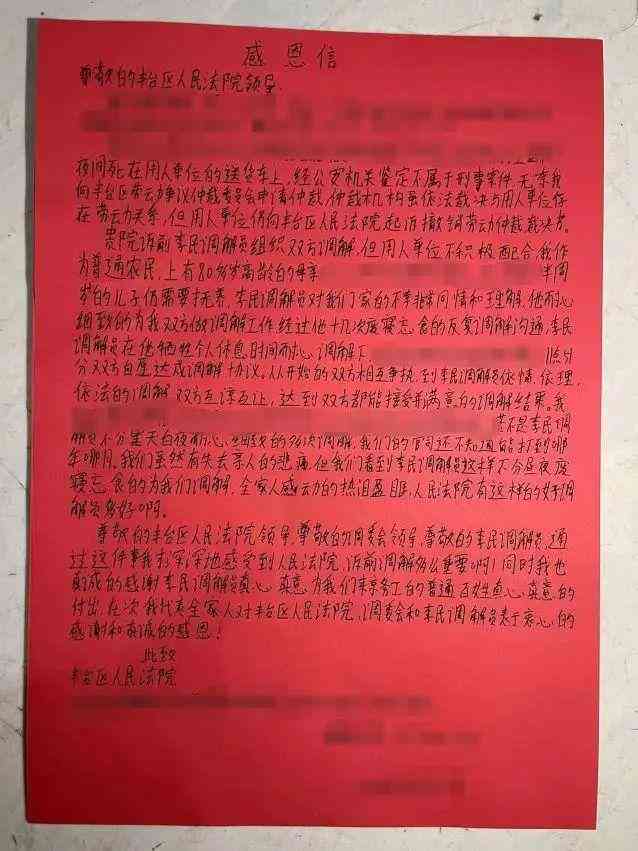 感恩信
尊敬的丰台区人民法院领导
夜间死在用人单位的送货车上,经公安机关鉴定不属于刑事案件,无奈我
向丰台区劳动争议仲裁委员会申请仲裁,仲裁机构虽依法裁决与用人单位存
在劳动关系,但用人单位仍向丰台区人民法院起诉撤销劳动仲裁裁决书。
贵院诉前李民调解员组织双方调解,但用人单位不积极配合,我作
为普通农民,上有80多岁高龄的母亲 半周
岁的儿子仍需要抚养,李民调解员对我们家的不幸非常同情和理解,他耐心
细致的为我双方做调解工作,经过他十几次废寝忘食的反复调解沟通,李民
调解员在他牺牲个人休息时间耐心调解下 11点51
分双方自愿达成调解协议。从开始的双方相互争执,到李民调解员依情、依理、
依法的调解,双方互谅互让,达到双方都能接受和满意的调解结果。我
若不是李民调
解员不分星天白夜耐心 的多次调解,我们的官司还不知道能打到哪
年哪月,我们虽然有失去亲人的悲痛,但我们看到李民调解员这样不分昼夜废
寝忘食的为我们调解,全家人感动的热泪盈眶,人民法院有这样的好调
解员多好啊。
尊敬的丰台区人民法院领导,尊敬的调委会领导,尊敬的李民调解员,通
过这件事我才深深地感受到人民法院诉前调解多么重要啊!同时我也
真诚的感谢李民调解员真心真意为我们来京务工的普通百姓真心真意的
付出,在次我代表全家人对丰台区人民法院、调委会和李民调解员表示衷心的
感谢和真诚的感恩!
此致
丰台区人民法院